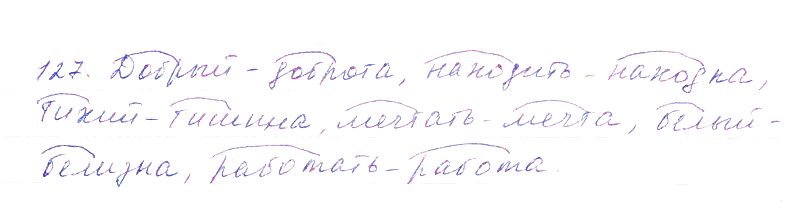 127. Добрый - доброта, находить - находка,
Тихий - тишина, мечтать - мечта, белый -
белизна, работать - работа.